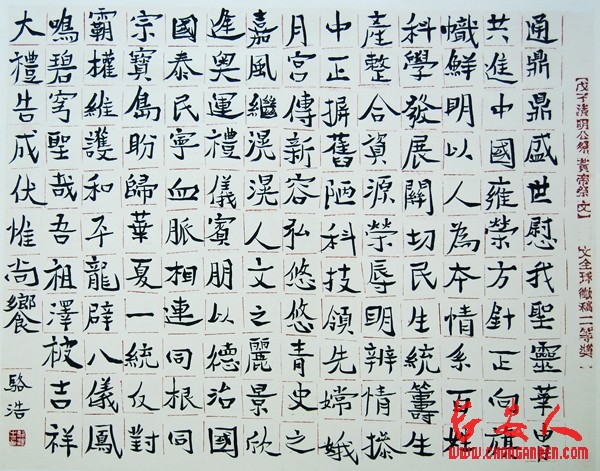 【戊子清明公祭黄帝祭文】 文全球徵稿二等獎
通鼎鼎盛世慰我聖靈華史
共進中國雍榮方針正向旗
幟鮮明以人為本情系百姓
科學發展關切民生統籌生
產整合資源榮辱明辨情操
中正摒舊陋科技領先嫦娥
月宮傳新容弘悠悠青史之
嘉風繼滉滉人文之麗景欣
逢奧運禮儀賓朋以德治國
國泰民寧血脈相連同根同
宗寶島盼歸華夏一統仅對
霸權維護和平龍辟八儀鳳
鳴碧穹聖哉吾祖澤被吉祥
大禮告成伏惟尚饗
駱浩
长安人
WWW.CHANGANREN.COM